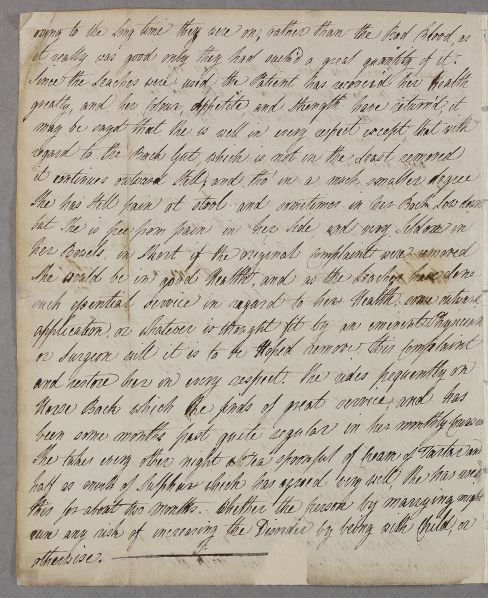 owing to the long time they were on; rather than the Bad Blood as
it really was good only they had suck'd a great quantity of it.
Since the Leaches were used the Patient has recover'd her Health
greatly, and her Colour, appetite and strength have return'd; it
may be said that she is well in every respect except that with
regard to the Back Gut, which is not in the least removed
it continues outward still; and tho' in a much smaller degree
She has still pain at stool and sometimes in her Back Low down
but she is free from pain in her side and very seldom in
her Bowels, in short if the original complaint were removed
She would be in good Health, and as the Leaches have done
such essential Service in regard to her Health, some outward
application, or whatever is thought fit by an eminent Physician
or Surgeon will it is to be Hoped remove this Complaint
and restore her in every respect. She rides frequently on
Horse Back which she finds of great service, and has
been some months past quite regular in her monthly Courses
She takes every other night a Tea spoonful of Cream of Tartar and
half as much of Sulphur which has agreed very well she has used
this for about two months. Whether the person by marrying might
run any risk of increasing the Disorder by being with Child, or
otherwise.